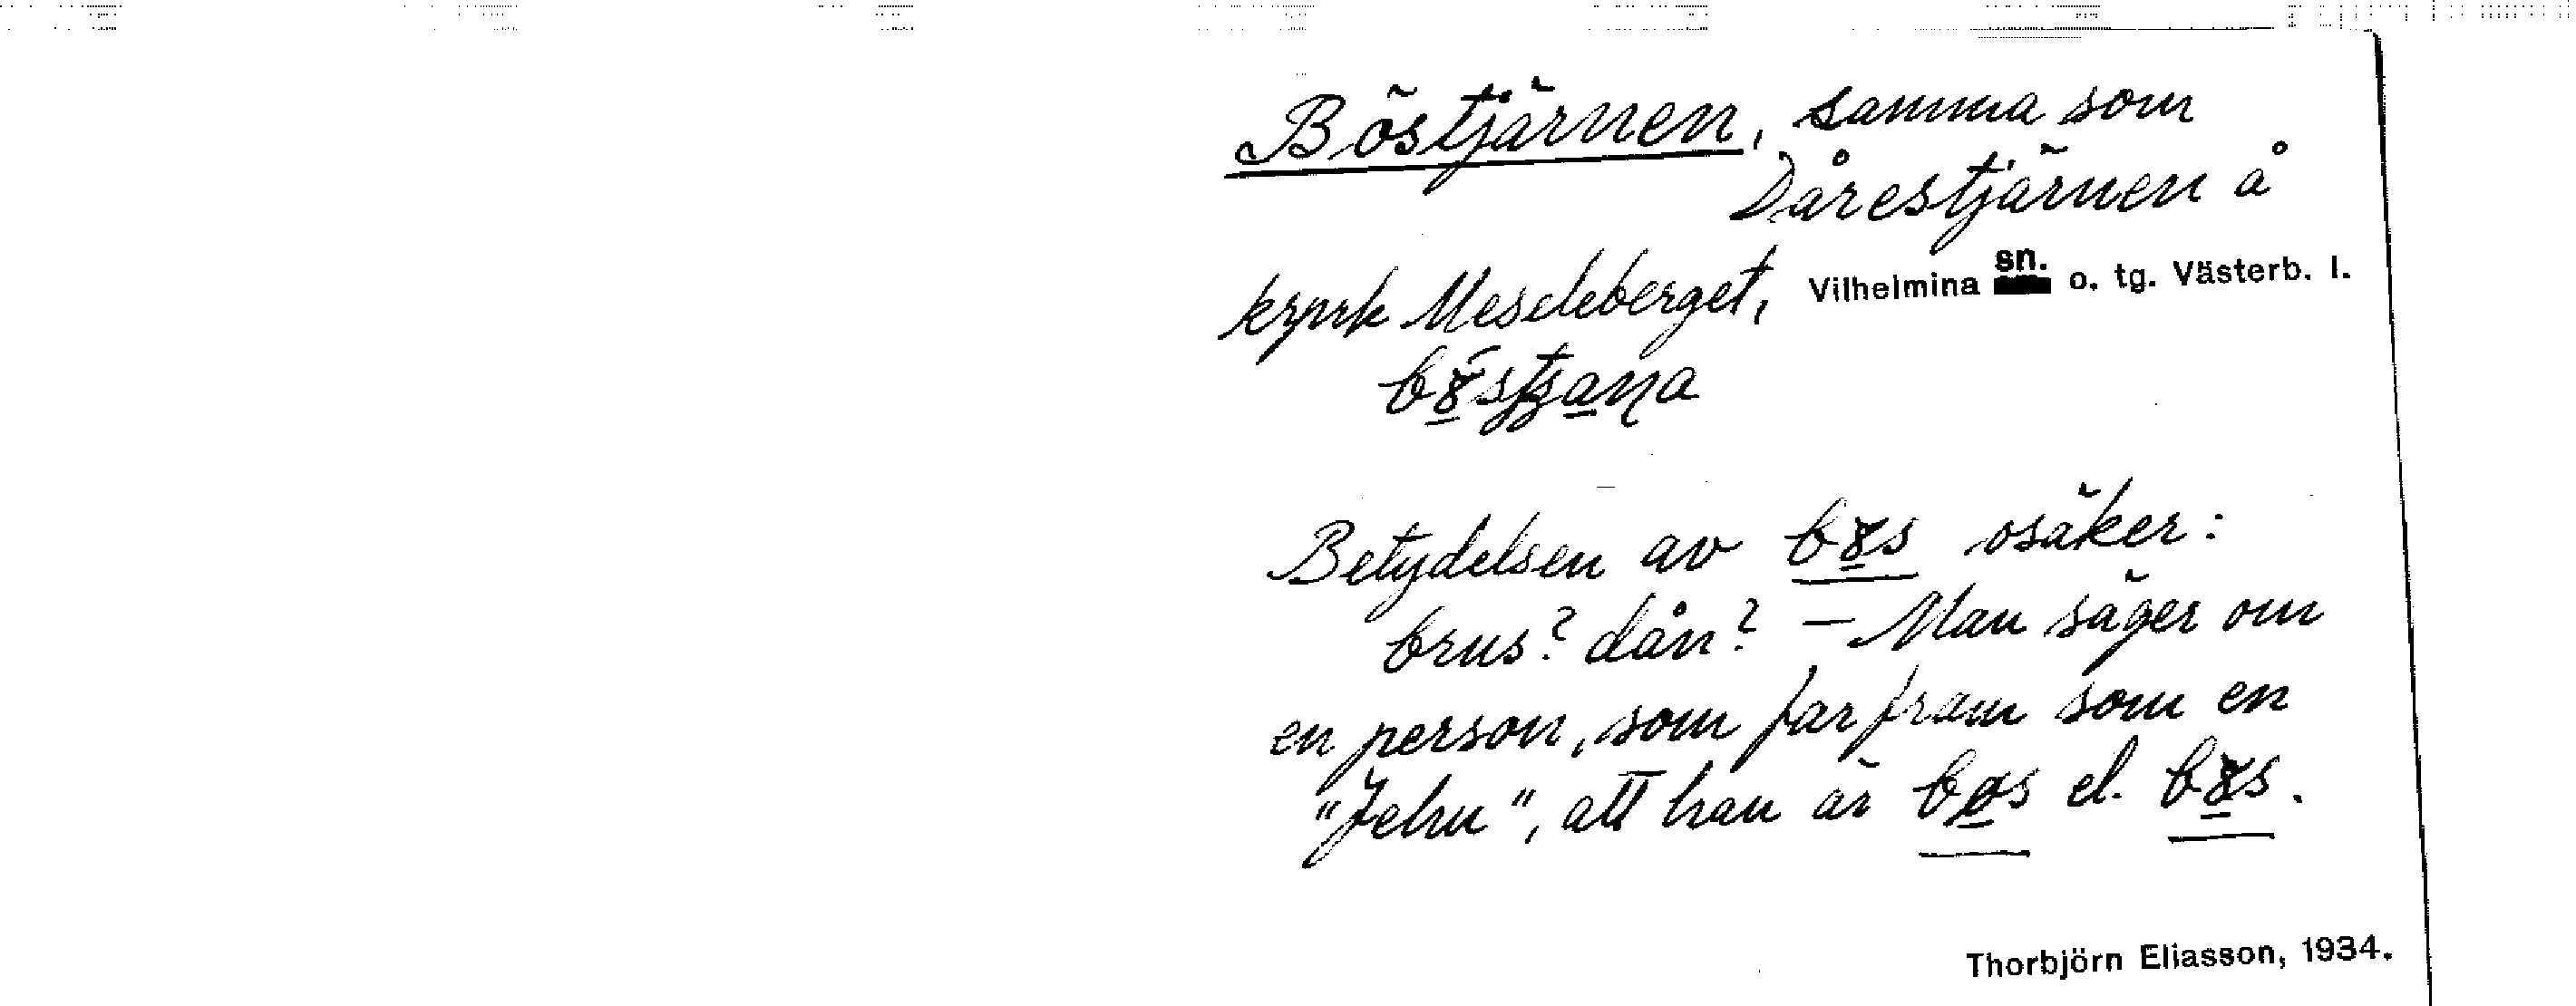 Böstjärnen, samma som
Dårestjärnen å
krprk Meseleberget, Vilhelmina sn. o. tg. Västerb. l.
Betydelsen av bɤs osäker:
brus? dån? – Man säger om
en person, som far fram som en
"Jehu", att han är bøs el. bɤs.
Thorbjörn Eliasson, 1934.